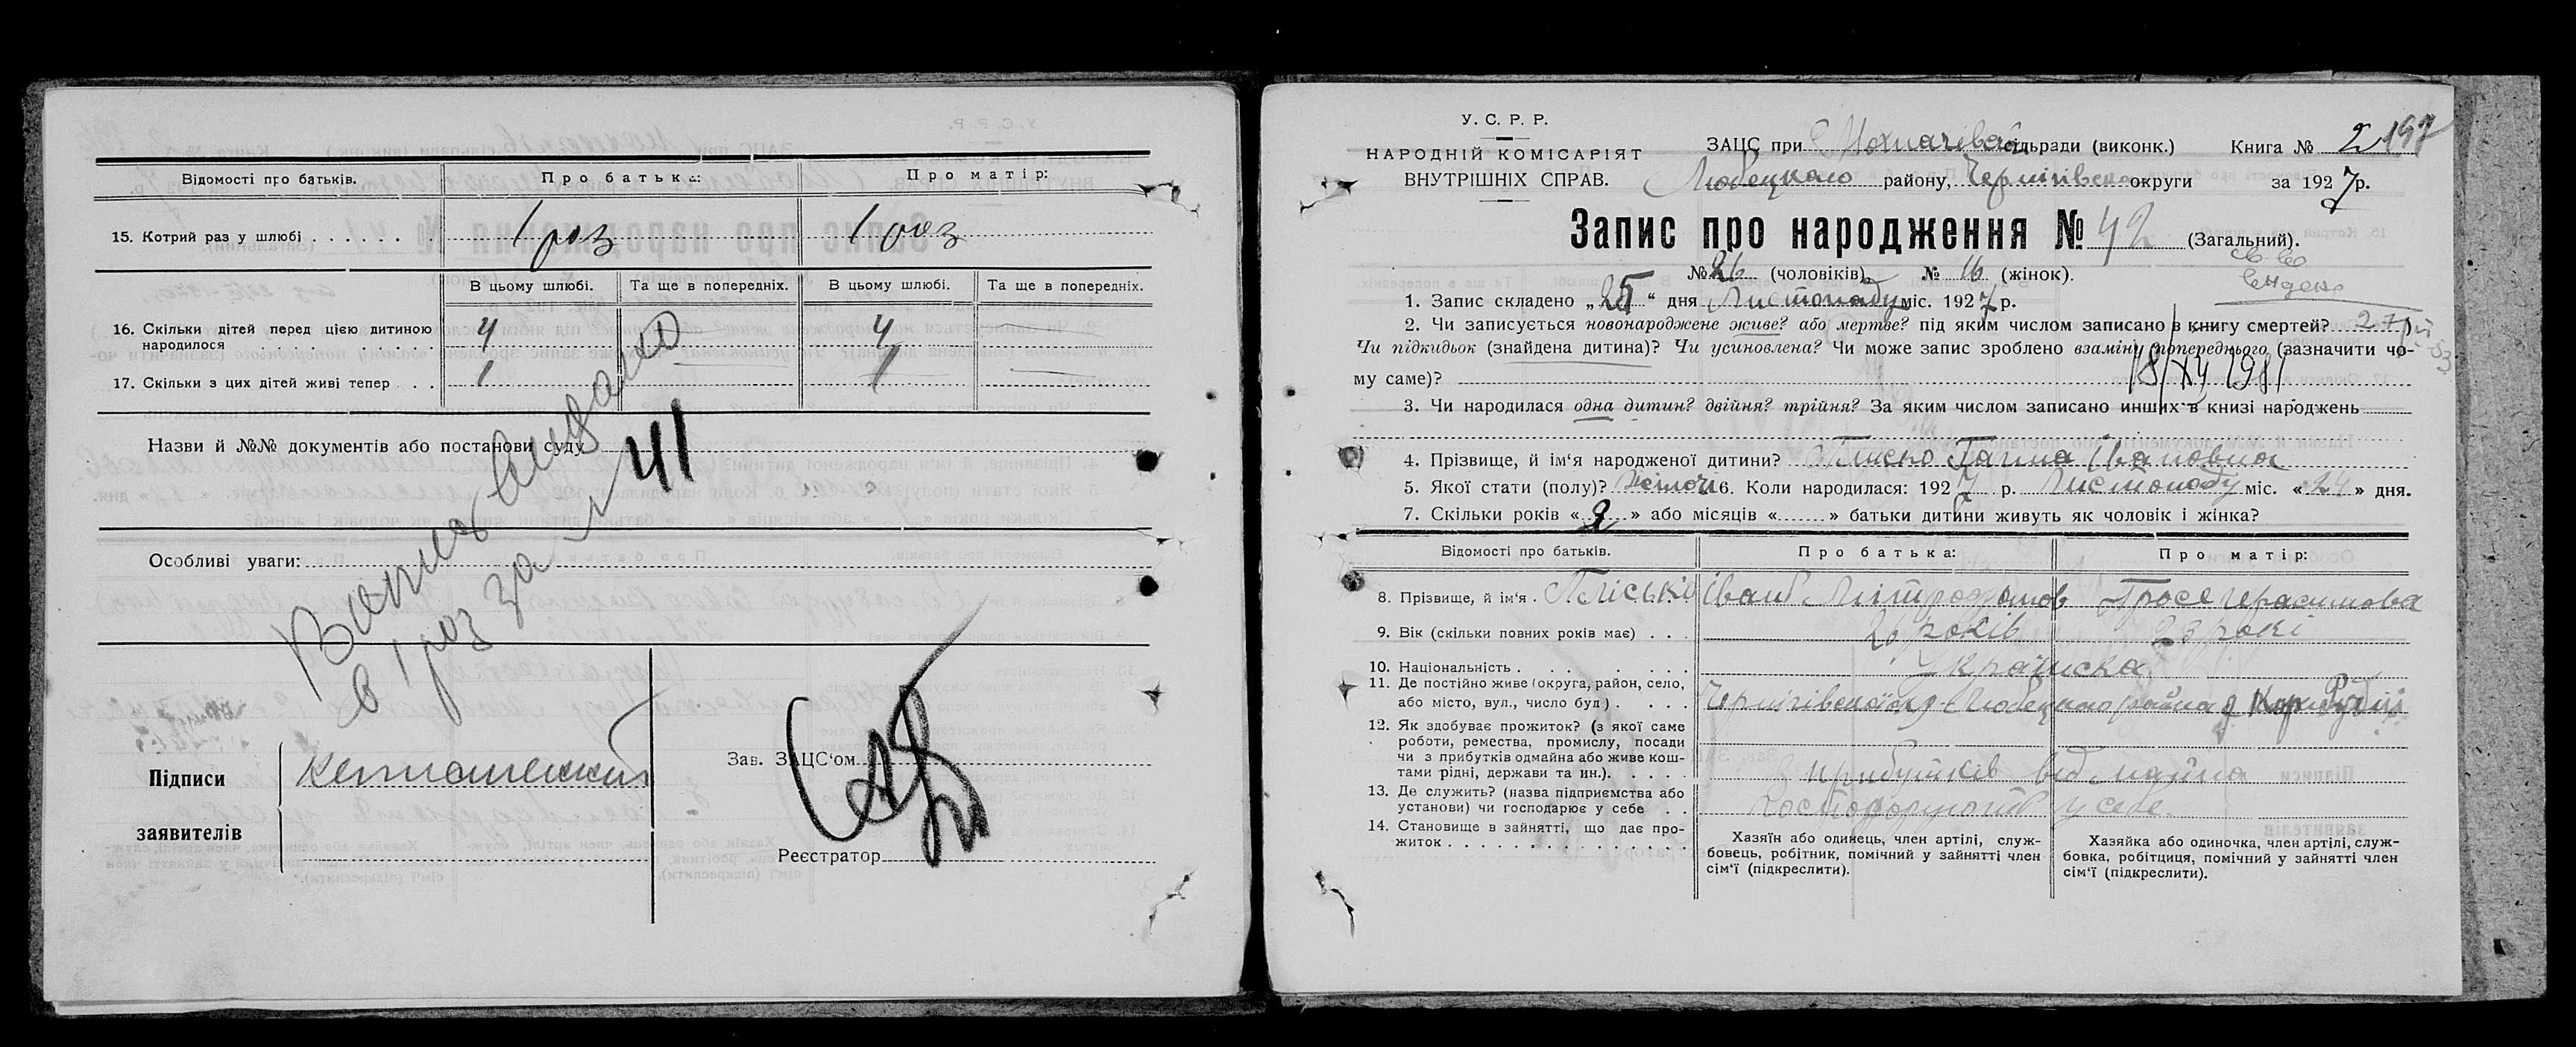 Відомості про батьків.
Про батька:
Про матір:
15. Котрий раз у шлюбі
1 раз
1 раз
В цьому шлюбі.
Та ще в попередніх.
В цьому шлюбі.
Та ще в попередніх.
16. Скільки дітей перед цією дитиною
народилося
4
4
17. Скільки з цих дітей живі тепер
1
1
Назви й №№ документів або постанови суду
41
Особливі уваги:
в 1 раз за
Підписи
заявителів
Зав. ЗАЦС'ом
Реєстратор
У. С. Р. Р.
НАРОДНІЙ КОМІСАРІЯТ
ВНУТРІШНІХ СПРАВ.
ЗАЦС при сільради (виконк.) Книга № 2 197
Любецкого району, Чернігівско округи за 1927 р.
Запис про народження № 42 (Загальний).
№ 26 (чоловіків), № 16 (жінок).
1. Запис складено „25“ дня Листопаду міс. 1927 р.
2. Чи записується новонароджене живе? або мертве? під яким числом записано в книгу смертей?
Чи підкидьок (знайдена дитина)? Чи усиновлена? Чи може запис зроблено взаміну попереднього (зазначити чо-
му саме)?
3. Чи народилася одна дитин? двійня? трійня? За яким числом записано инших в книзі народжень
4. Прізвище, й ім'я народженої дитини? Пліско Ганна Івановна
5. Якої стати (полу)? Жіночі 6. Коли народилася: 1927 р. Листопаду міс. «24» дня.
7. Скільки років « » або місяців « » батьки дитини живуть як чоловік і жінка?
Відомості про батьків.
Про батька:
Про матір:
8. Прізвище, й ім'я. Пліські Іван Мітрофанов
Прося Герасимова
9. Вік (скільки повних років має)
26 років
23 рокі
10. Національність
Українска
11. Де постійно живе (округа, район, село,
або місто, вул., число буд)
Чернігівської окр Любецкого района
12. Як здобуває прожиток? (з якої саме
роботи, ремества, промислу, посади
чи з прибутків одмайна або живе кош-
тами рідні, держави та ин.).
З прибутків від майна
13. Де служить? (назва підприємства або
установи) чи господарює у себе
у себе.
14. Становище в зайнятті, що дає про-
житок
Хазяїн або одинець, член артілі, служ-
бовець, робітник, помічний у зайнятті член
сім'ї (підкреслити).
Хазяйка або одиночка, член артілі, служ-
бовка, робітциця, помічний у зайнятті член
сім'ї (підкреслити).